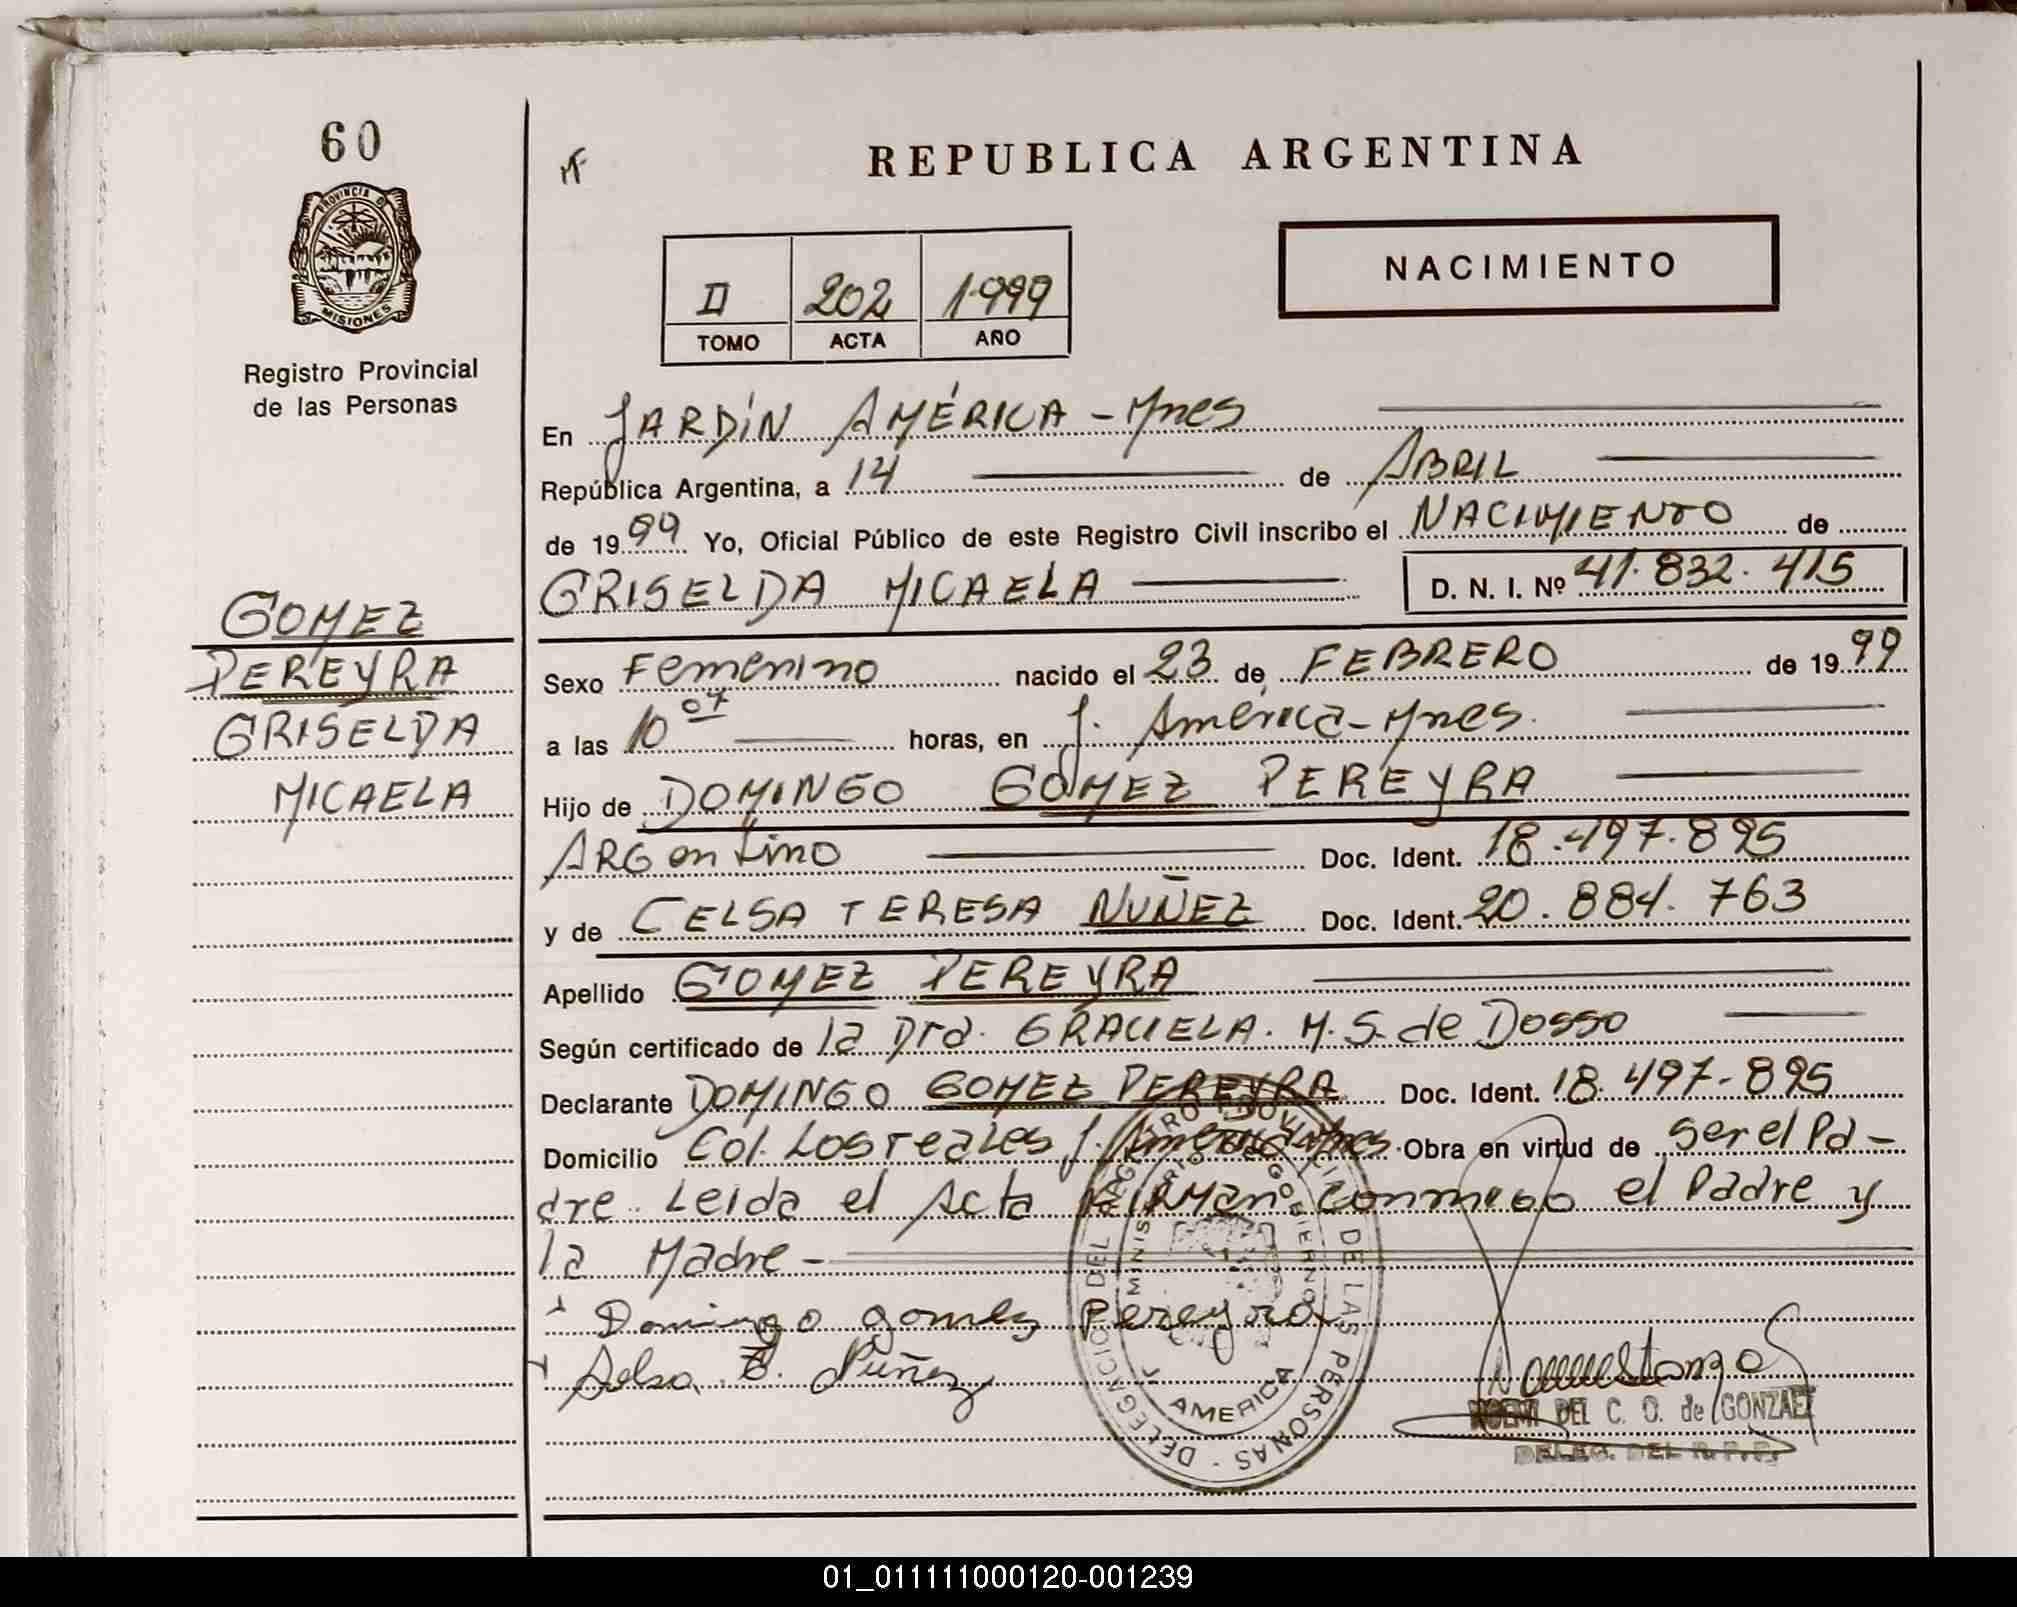 60
PROVINCIA DE
MISIONES
Registro Provincial
de las Personas
GOMEZ
PEREYRA
GRISELDA
MICAELA
REPUBLICA ARGENTINA
II 202 1999
TOMO ACTA AÑO
NACIMIENTO
En JARDÍN AMÉRICA - Mnes
República Argentina, a 14 de ABRIL
de 1999 Yo, Oficial Público de este Registro Civil inscribo el NACIMIENTO de
GRISELDA MICAELA D. N. I. Nº 41.832.415
Sexo Femenino nacido el 23 de FEBRERO de 1999
a las 10 07 horas, en J. América - Mnes.
Hijo de DOMINGO GOMEZ PEREYRA
ARGentino Doc. Ident. 18.497.895
y de CELSA TERESA NUÑEZ Doc. Ident. 20.884.763
Apellido GOMEZ PEREYRA
Según certificado de la Dra. GRACIELA. M. S. de Dosso
Declarante DOMINGO GOMEZ PEREYRA Doc. Ident. 18.497-895
Domicilio Col. Los reales J. America Mnes. Obra en virtud de ser el Pa-
dre. Leida el Acta FIRMan conmigo el Padre y
la Madre -
Domingo gomez Pereyra
Selsa. T. Núñez
DELEGACION DEL REGISTRO PROVINCIAL DE LAS PERSONAS
MINISTERIO DE GOBIERNO
J. AMERICA
NOEMI DEL C. O. de GONZALEZ
DELEG. DEL R. P. P.
01_011111000120-001239